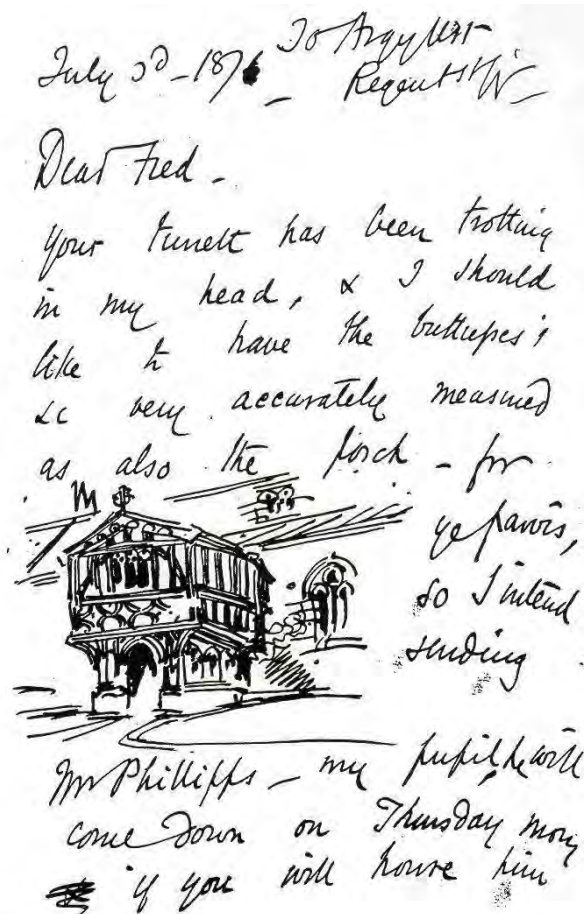 July 3d - 187
Argyll St
Regent St W
Dear Fred -
your turrett has been trotting
in my head, & I should
like to have the buttresses
&c very accurately measured
as also the porch - for
ye parvis,
so I intend
sending
Mr Phillipps - my pupil, he will
come down on Thursday morng
if you will house him